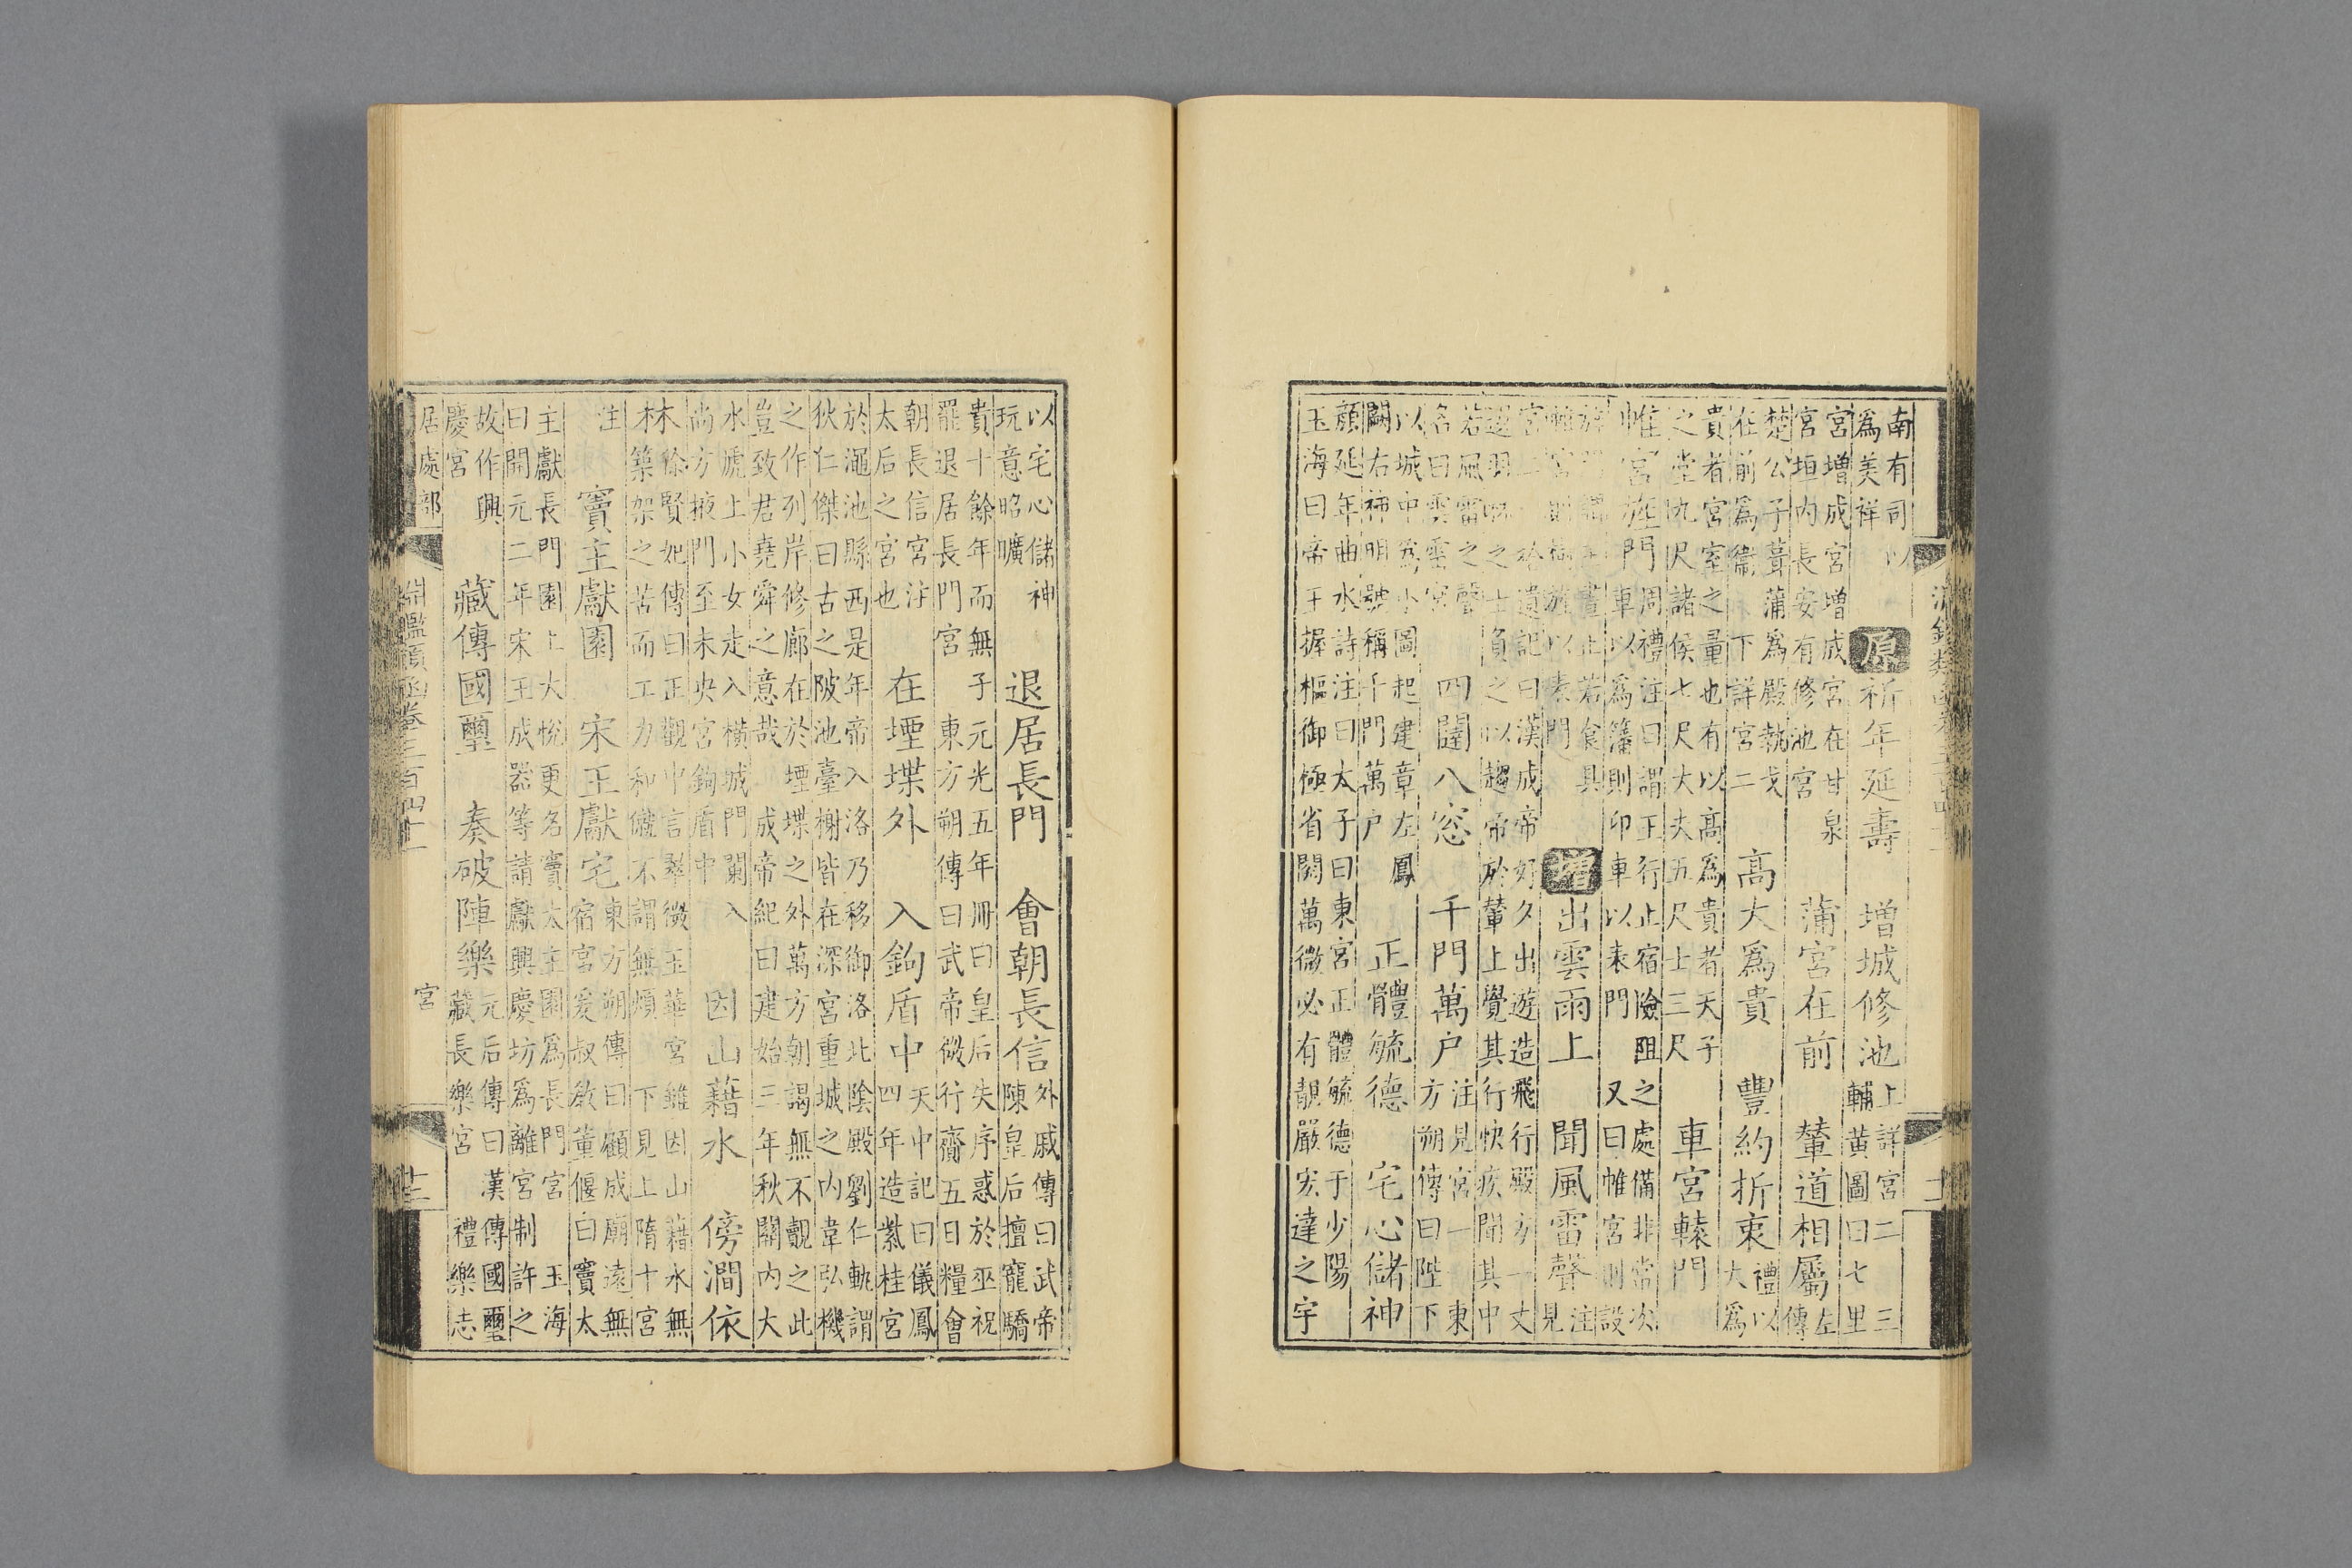 南有司以
爲美祥
原祈年延壽 增城修池
上詳宮二 三
輔黃圖曰七里
宮增成宮增成宮在甘泉
宮垣内長安有修池宮
蒲宮在前 輦道相屬
左
傳
楚公子葺蒲爲殿執戈
在前爲衞 下詳宮二
高大爲貴 豐約折衷
禮以
大爲
貴者宮室之量也有以高爲貴者天子
之堂九尺諸侯七尺大夫五尺士三尺
車宮轅門
帷宮旌門
周禮注曰謂王行止宿險阻之處備非常次
車以爲藩則卬車以表門 又曰帷宮則設
旌門謂王晝止若食具
帷宮則樹旌以表門
增出雲雨上 聞風雷聲
注
見
宮二 拾遺記曰漢成帝好夕出遊造飛行殿方一丈
選羽林之士負之以趨帝於輦上覺其行快疾聞其中
若風雷之聲
名曰雲雷宮
四闥八窓 千門萬户
注見宮一 東
方朔傳曰陛下
以城中爲小圖起建章左鳳
闕右神明號稱千門萬户
正體毓德 宅心儲神
顏延年曲水詩注曰太子曰東宮正體毓德于少陽
玉海曰帝王握樞御極省闥萬微必有靚嚴宏達之宇
以宅心儲神
玩意昭曠
退居長門 會朝長信
外戚傳曰武帝
陳皇后擅寵驕
貴十餘年而無子元光五年冊曰皇后失序惑於巫祝
罷退居長門宮 東方朔傳曰武帝微行齎五日糧會
朝長信宮注
太后之宮也
在堙堞外 入鉤盾中
天中記曰儀鳳
四年造紫桂宮
於澠池縣西是年帝入洛乃移御洛北陰殿劉仁軌謂
狄仁傑曰古之陂池臺榭皆在深宮重城之内韋弘機
之作列岸修廊在於堙堞之外萬方朝謁無不覩之此
豈致君堯舜之意哉 成帝紀曰建始三年秋關内大
水虒上小女走入橫城門闌入
尚方掖門至未央宮鉤盾中
因山藉水 傍澗依
林
徐賢妃傳曰正觀中言翠微玉華宮雖因山藉水無
築架之苦而工力和僦不謂無煩 下見上隋十宮
注
竇主獻園 宋王獻宅
東方朔傳曰顧成廟遠無
宿宮爰叔敎董偃白竇太
主獻長門園上大悅更名竇太主園爲長門宮 玉海
曰開元二年宋王成器等請獻興慶坊爲離宮制許之
故作興
慶宮
藏傳國璽 奏破陣樂
元后傳曰漢傳國璽
藏長樂宮 禮樂志
居處部 淵鑑類函卷三百四十 宮